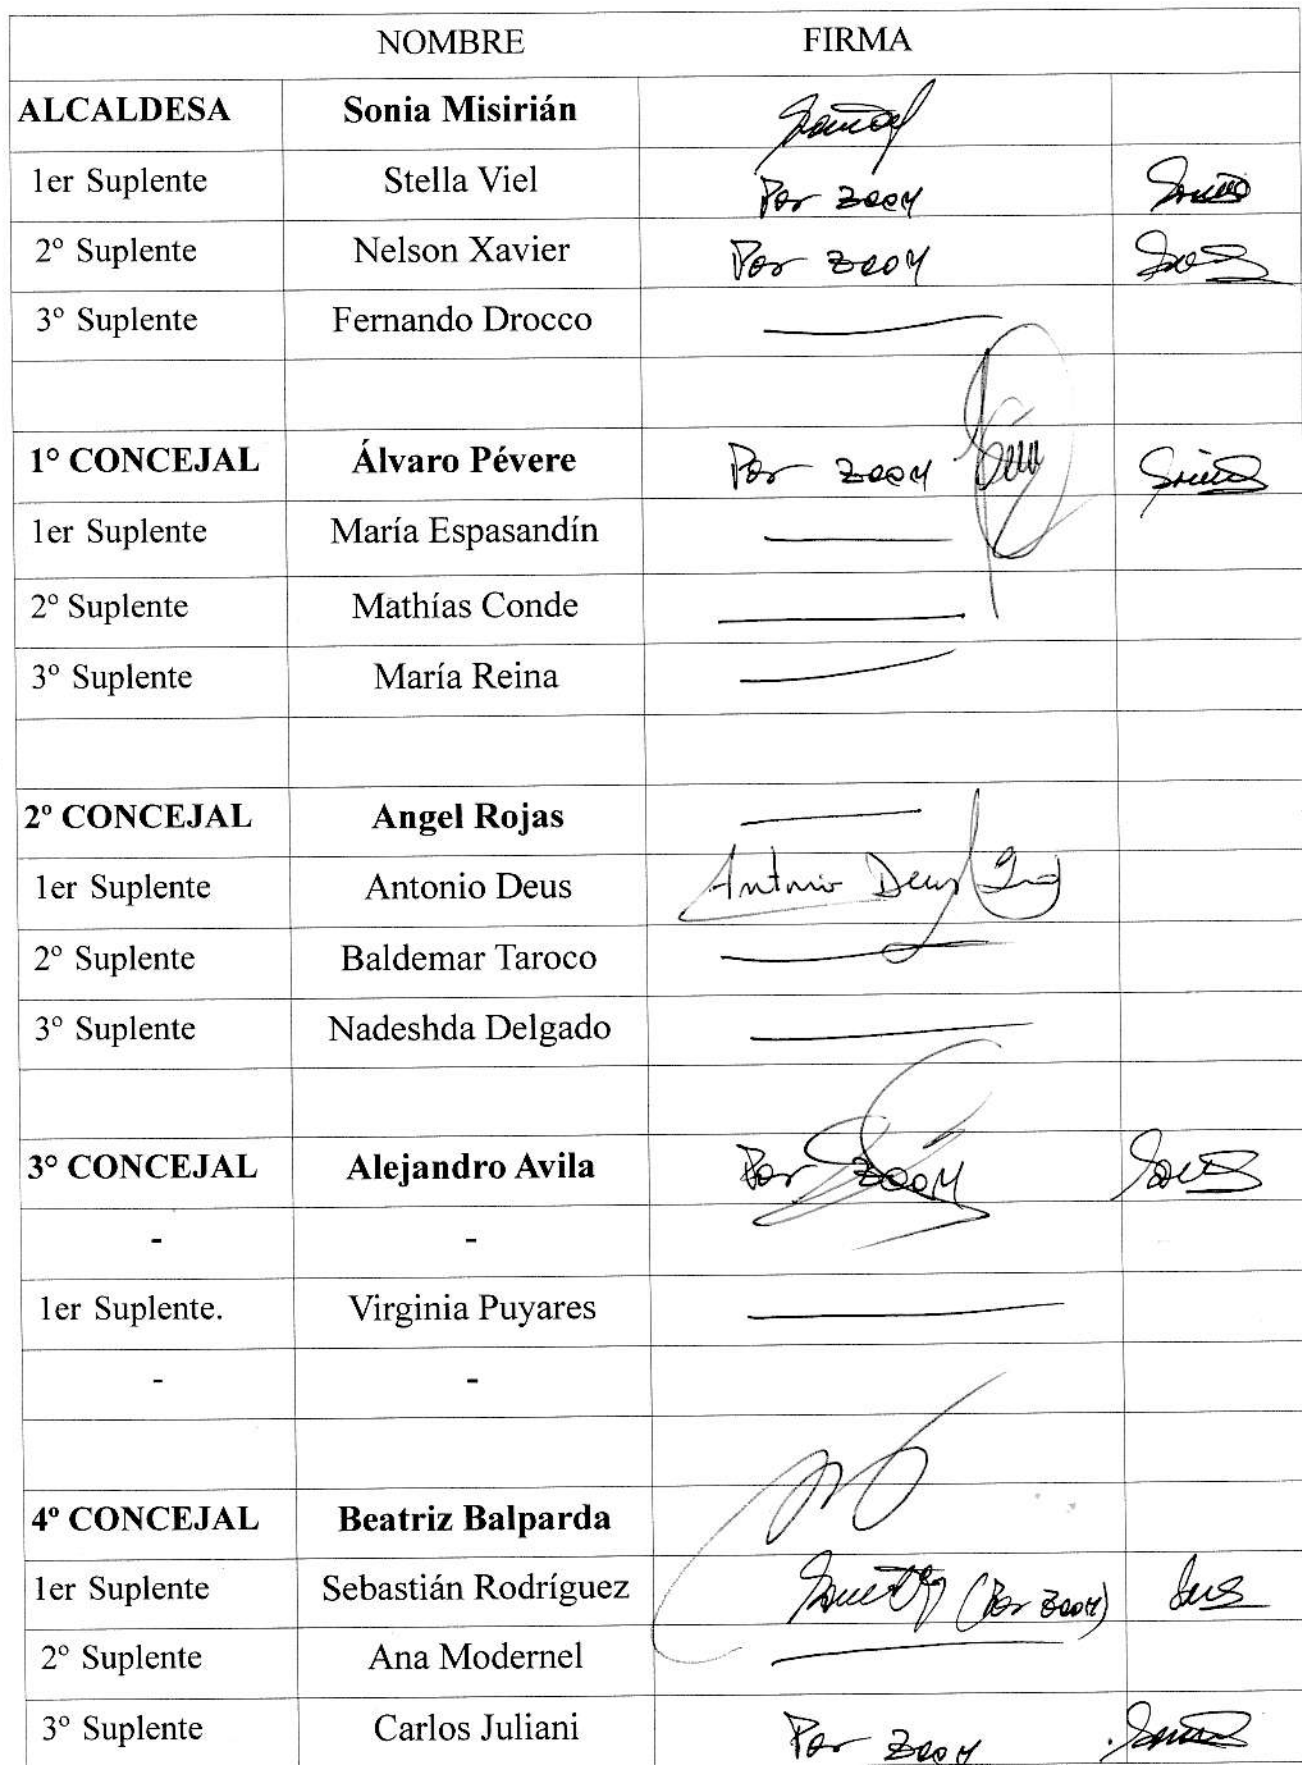 NOMBRE FIRMA
ALCALDESA Sonia Misirián
1er Suplente Stella Viel Por zoom
2º Suplente Nelson Xavier Por zoom
3º Suplente Fernando Drocco
1º CONCEJAL Álvaro Pévere Por zoom
1er Suplente María Espasandín
2º Suplente Mathías Conde
3º Suplente María Reina
2º CONCEJAL Angel Rojas
1er Suplente Antonio Deus Antonio Deus
2º Suplente Baldemar Taroco
3º Suplente Nadeshda Delgado
3º CONCEJAL Alejandro Avila Por zoom
- -
1er Suplente. Virginia Puyares
- -
4º CONCEJAL Beatriz Balparda
1er Suplente Sebastián Rodríguez (Por zoom)
2º Suplente Ana Modernel
3º Suplente Carlos Juliani Por zoom